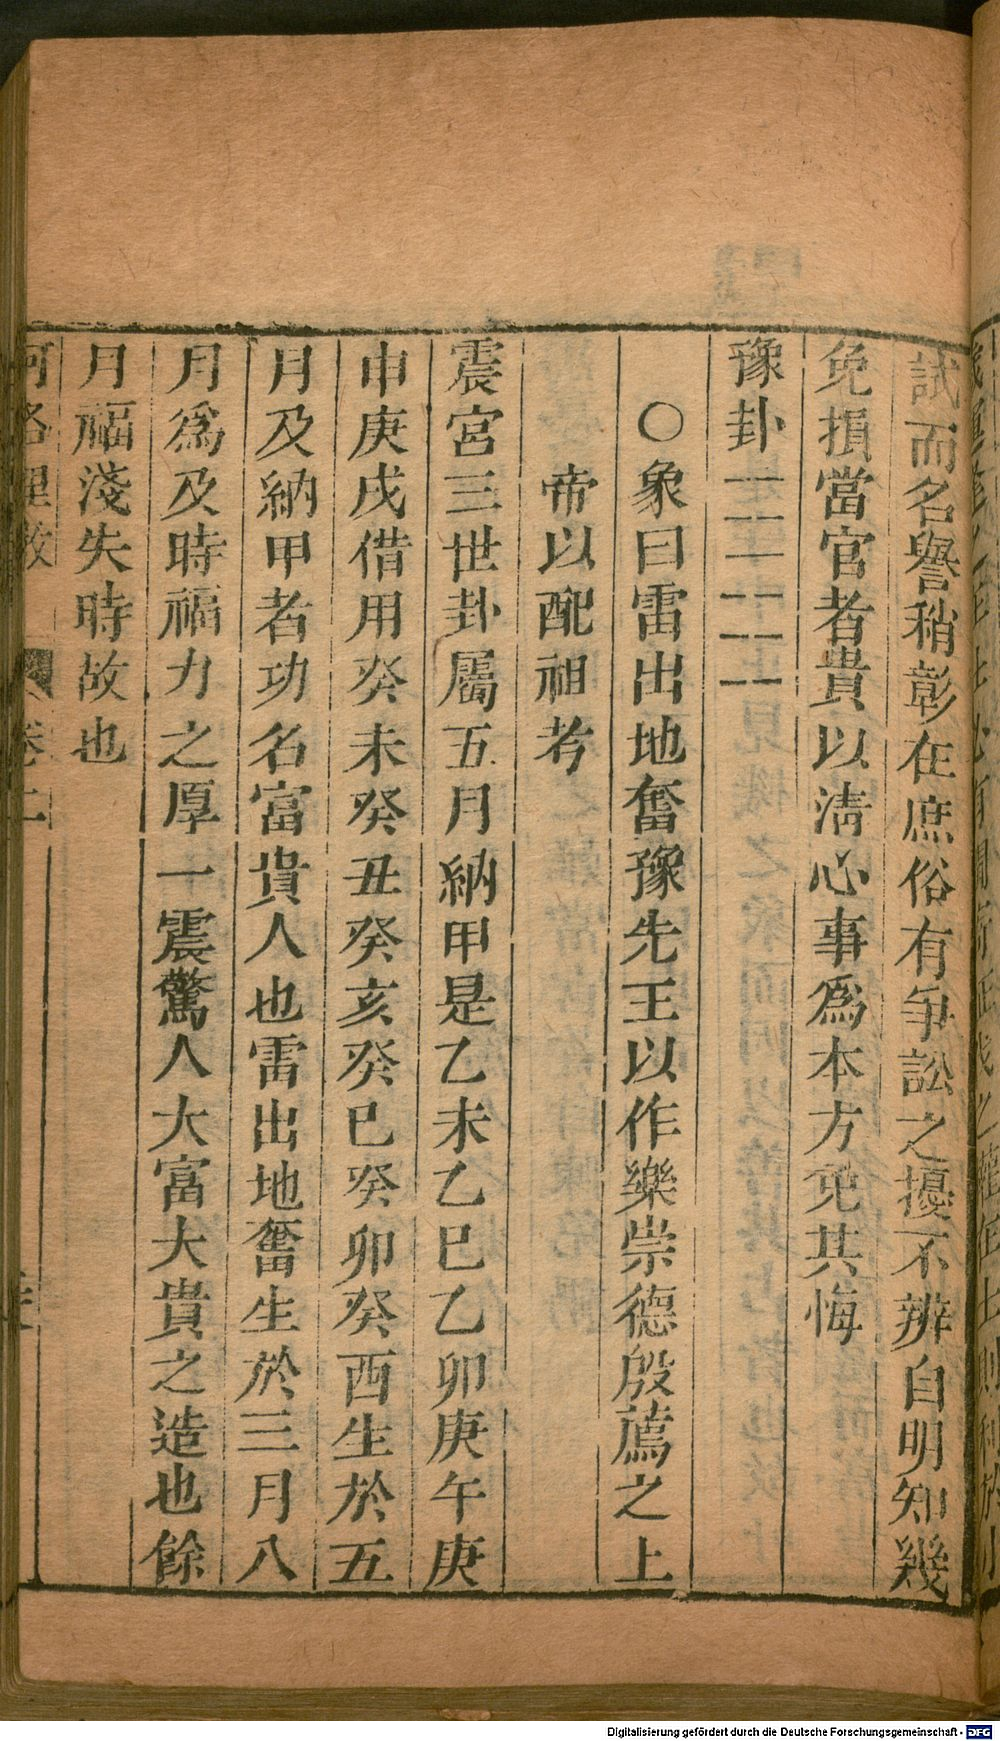 試而名譽稍彰在庶俗有爭訟之擾不辨自明知幾
免損當官者貴以淸心事爲本方免其悔
豫卦
○象曰雷出地奮豫先王以作樂崇德殷薦之上
帝以配祖考
震宮三世卦屬五月納甲是乙未乙巳乙卯庚午庚
申庚戌借用癸未癸丑癸亥癸巳癸卯癸酉生於五
月及納甲者功名富貴人也雷出地奮生於三月八
月爲及時福力之厚一震驚人大富大貴之造也餘
月福淺失時故也
河洛理數 卷二
Digitalisierung gefördert durch die Deutsche Forschungsgemeinschaft - DFG